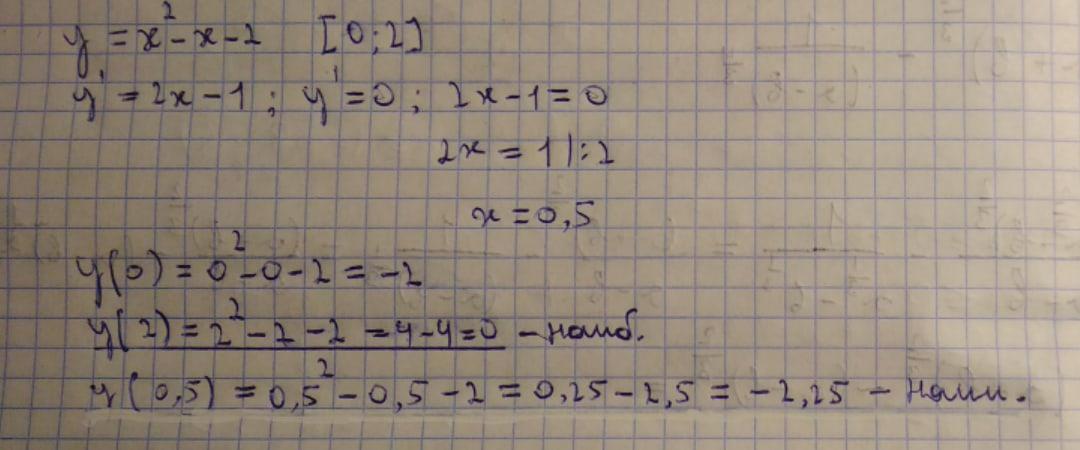 y = x² - x - 2 [0;2]
y' = 2x - 1 ; y' = 0 ; 2x - 1 = 0
2x = 1 |:2
x = 0,5
y(0) = 0² - 0 - 2 = -2
y(2) = 2² - 2 - 2 = 4 - 4 = 0 - наиб.
y(0,5) = 0,5² - 0,5 - 2 = 0,25 - 2,5 = -2,25 - наим.